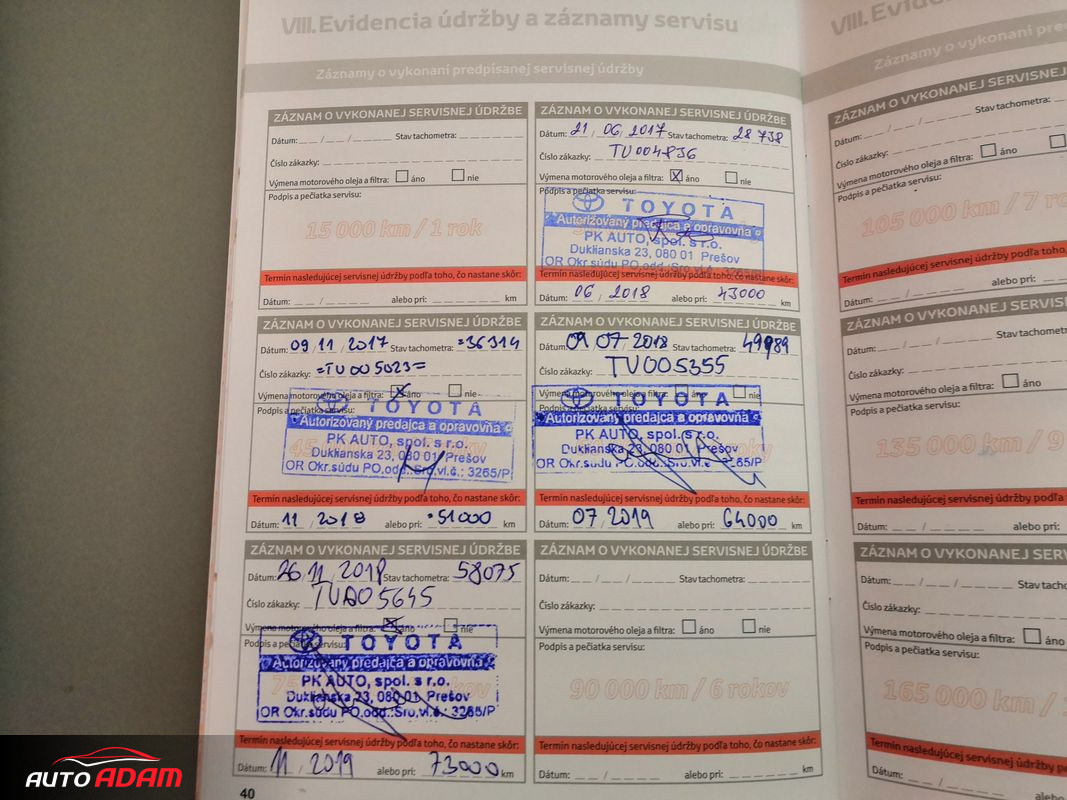 VIII. Evidencia údržby a záznamy servisu
Záznamy o vykonaní predpísanej servisnej údržby
ZÁZNAM O VYKONANEJ SERVISNEJ ÚDRŽBE
Dátum: Stav tachometra:
Číslo zákazky:
Výmena motorového oleja a filtra: áno nie
Podpis a pečiatka servisu:
15 000 km / 1 rok
Termín nasledujúcej servisnej údržby podľa toho, čo nastane skôr:
Dátum: alebo pri: km
ZÁZNAM O VYKONANEJ SERVISNEJ ÚDRŽBE
Dátum: 21 / 06 / 2017 Stav tachometra: 28 738
Číslo zákazky: TU004836
Výmena motorového oleja a filtra: X áno nie
Podpis a pečiatka servisu:
TOYOTA
Autorizovaný predajca a opravovňa
PK AUTO, spol. s r.o.
Duklianska 23, 080 01 Prešov
OR Okr.súdu PO,odd.:Sro,vl.č.:
Termín nasledujúcej servisnej údržby podľa toho, čo nastane skôr:
Dátum: 06 / 2018 alebo pri: 43000 km
ZÁZNAM O VYKONANEJ SERVISNEJ ÚDRŽBE
Dátum: 09 / 11 / 2017 Stav tachometra: =36314
Číslo zákazky: =TU005023=
Výmena motorového oleja a filtra: X áno nie
Podpis a pečiatka servisu:
TOYOTA
Autorizovaný predajca a opravovňa
PK AUTO, spol. s r.o.
Duklianska 23, 080 01 Prešov
OR Okr.súdu PO,odd.:Sro,vl.č.: 3265/P
Termín nasledujúcej servisnej údržby podľa toho, čo nastane skôr:
Dátum: 11 / 2018 alebo pri: 51000 km
ZÁZNAM O VYKONANEJ SERVISNEJ ÚDRŽBE
Dátum: 09 07 2018 Stav tachometra: 49989
Číslo zákazky: TU005355
Výmena motorového oleja a filtra: nie
Podpis a pečiatka servisu:
TOYOTA
Autorizovaný predajca a opravovňa
PK AUTO, spol. s r.o.
Duklianska 23, 080 01 Prešov
OR Okr.súdu PO,odd.:Sro,vl.č.: 3265/P
Termín nasledujúcej servisnej údržby podľa toho, čo nastane skôr:
Dátum: 07 / 2019 alebo pri: 64000 km
ZÁZNAM O VYKONANEJ SERVISNEJ ÚDRŽBE
Dátum: 26 / 11 / 2018 Stav tachometra: 58075
Číslo zákazky: TU005645
Výmena motorového oleja a filtra: X áno nie
Podpis a pečiatka servisu:
TOYOTA
Autorizovaný predajca a opravovňa
PK AUTO, spol. s r.o.
Duklianska 23, 080 01 Prešov
OR Okr.súdu PO,odd.:Sro,vl.č.: 3265/P
Termín nasledujúcej servisnej údržby podľa toho, čo nastane skôr:
Dátum: 11 / 2019 alebo pri: 73000 km
ZÁZNAM O VYKONANEJ SERVISNEJ ÚDRŽBE
Dátum: Stav tachometra:
Číslo zákazky:
Výmena motorového oleja a filtra: áno nie
Podpis a pečiatka servisu:
90 000 km / 6 rokov
Termín nasledujúcej servisnej údržby podľa toho, čo nastane skôr:
Dátum: alebo pri: km
40
VIII. Eviden
Záznamy o vykonaní pre
ZÁZNAM O VYKONANEJ SERVISN
Dátum: Stav tachometra:
Číslo zákazky:
Výmena motorového oleja a filtra: áno
Podpis a pečiatka servisu:
105 000 km / 7 ro
Termín nasledujúcej servisnej údržby podľa toho,
Dátum: alebo pri:
ZÁZNAM O VYKONANEJ SERVISN
Dátum: Stav tachometra
Číslo zákazky:
Výmena motorového oleja a filtra: áno
Podpis a pečiatka servisu:
135 000 km / 9
Termín nasledujúcej servisnej údržby podľa
Dátum: alebo pri:
ZÁZNAM O VYKONANEJ SERV
Dátum: Stav tacho
Číslo zákazky:
Výmena motorového oleja a filtra: áno
Podpis a pečiatka servisu:
165 000 km /
Termín nasledujúcej servisnej údržby po
Dátum: alebo
AUTO ADAM